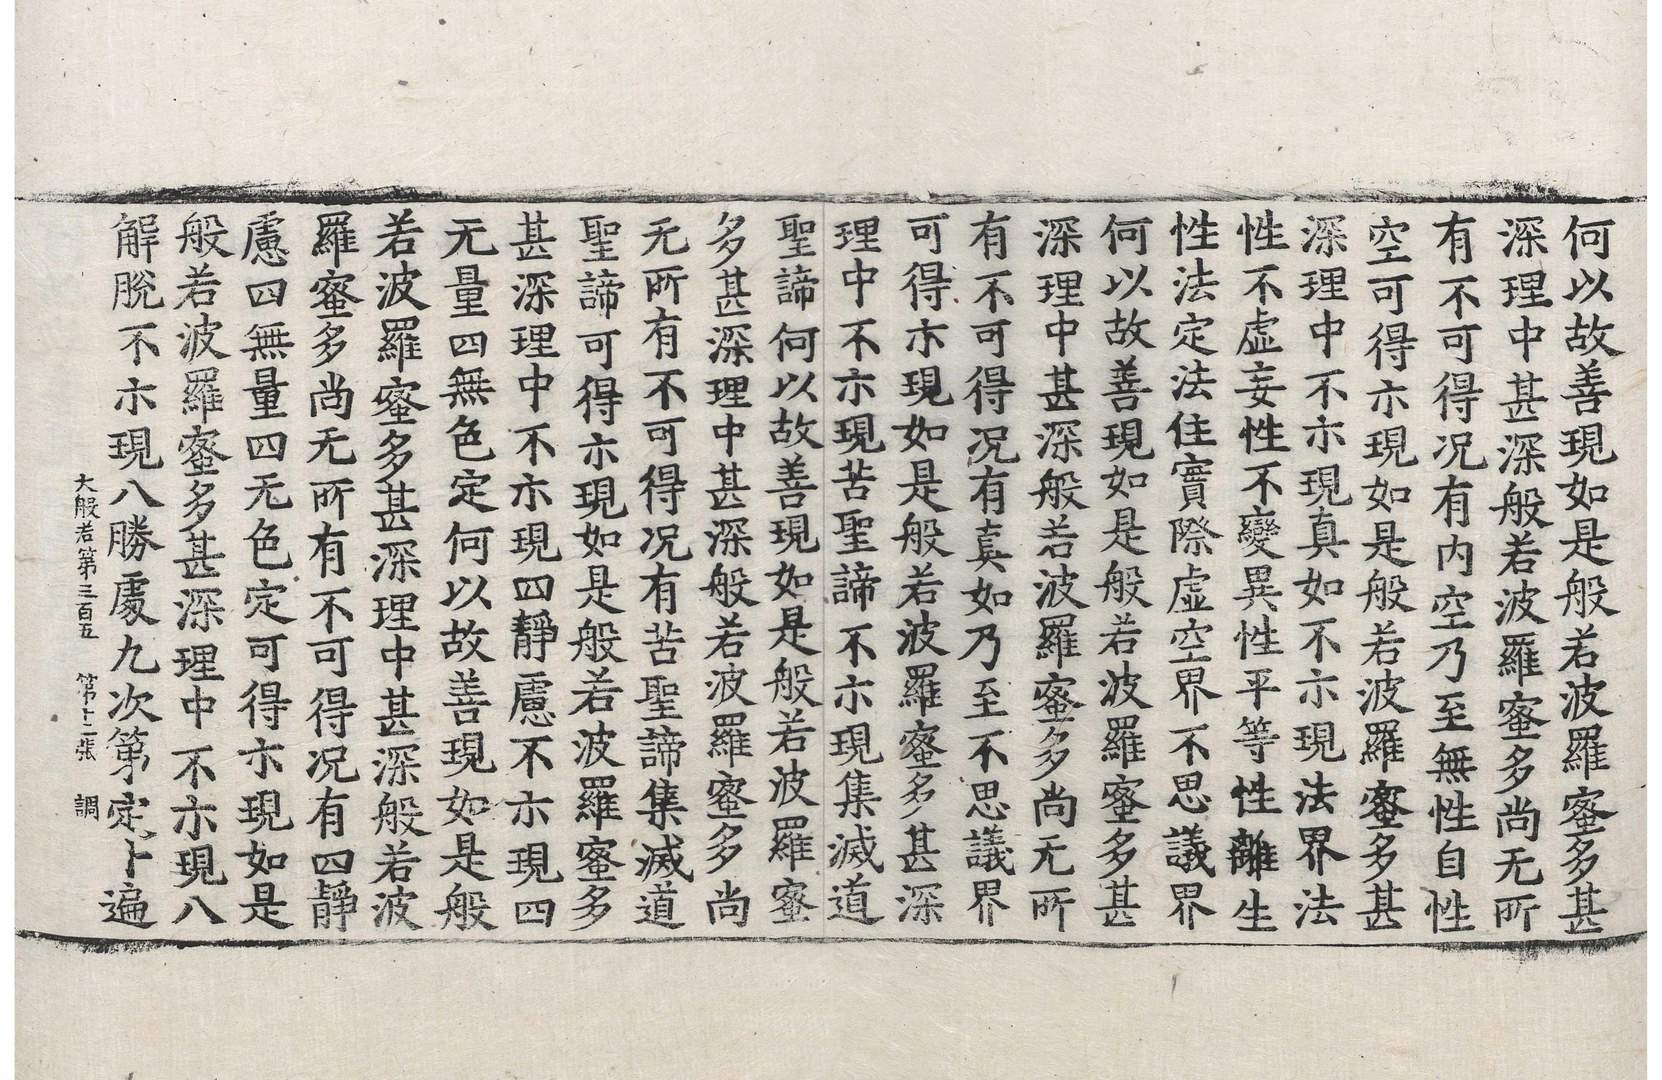 何以故善現如是般若波羅蜜多甚
深理中甚深般若波羅蜜多尚无所
有不可得况有内空乃至無性自性
空可得示現如是般若波羅蜜多甚
深理中不示現真如不示現法界法
性不虛妄性不變異性平等性離生
性法定法住實際虛空界不思議界
何以故善現如是般若波羅蜜多甚
深理中甚深般若波羅蜜多尚无所
有不可得况有真如乃至不思議界
可得示現如是般若波羅蜜多甚深
理中不示現苦聖諦不示現集滅道
聖諦何以故善現如是般若波羅蜜
多甚深理中甚深般若波羅蜜多尚
无所有不可得况有苦聖諦集滅道
聖諦可得示現如是般若波羅蜜多
甚深理中不示現四靜慮不示現四
无量四無色定何以故善現如是般
若波羅蜜多甚深理中甚深般若波
羅蜜多尚无所有不可得况有四靜
慮四無量四无色定可得示現如是
般若波羅蜜多甚深理中不示現八
解脫不示現八勝處九次第定十遍
大般若第三百五 第十二張 調